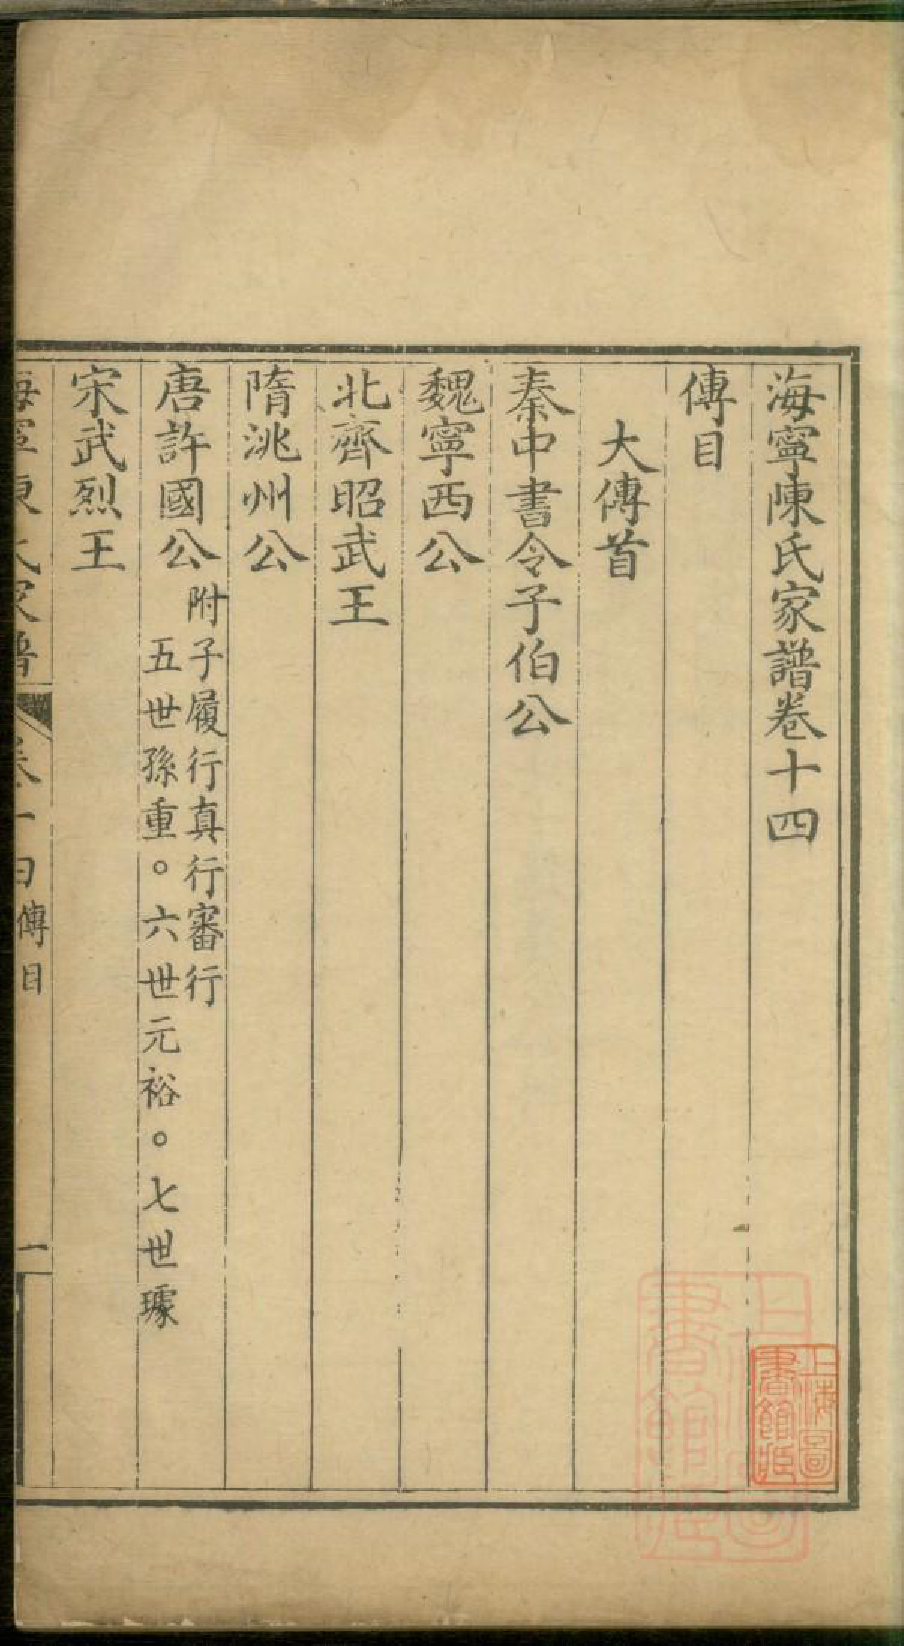 海寧陳氏家譜卷十四
傳目
大傳首
秦中書令子伯公
魏寧西公
北齊昭武王
隋洮州公
唐許國公附子履行真行審行
五世孫重。六世元裕。七世璩
宋武烈王
傳目
一
上海圖書館藏